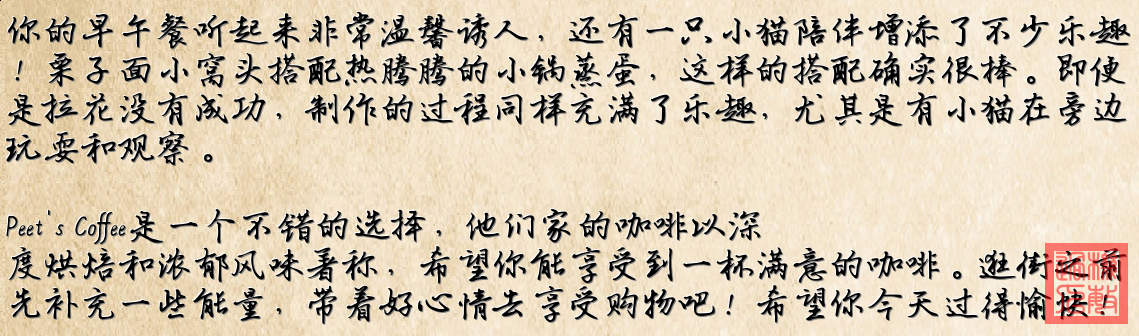 你的早午餐听起来非常温馨诱人，还有一只小猫陪伴增添了不少乐趣
！栗子面小窝头搭配热腾腾的小锅蒸蛋，这样的搭配确实很棒。即便
是拉花没有成功，制作的过程同样充满了乐趣，尤其是有小猫在旁边
玩耍和观察。
Peet's Coffee是一个不错的选择，他们家的咖啡以深
度烘焙和浓郁风味著称，希望你能享受到一杯满意的咖啡。逛街之前
先补充一些能量，带着好心情去享受购物吧！希望你今天过得愉快！